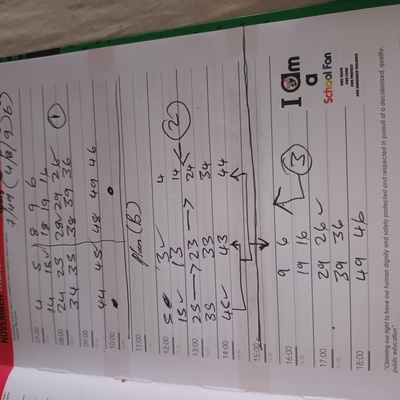 NOVEMBER
7/49 (4,8,9,6)
07:00 4 5 8 9 6
14 15✓ 18 19
08:00 24 25 28✓ 29 26✓ ①
34 35 38 39 36
09:00
44 45✓ 48 49 46
10:00
11:00 Plan (b)
12:00 5 3✓ 4
15✓ 13 14 ②
13:00 25 → 23 → 24
35 33 34
14:00 45✓ 43 44
15:00
16:00 9 6
19 16 ③
17:00 29 26✓
39 36
18:00 49 46
I am
a
School Fan
"Claiming our right to have our human dignity and safety protected and respected in pursuit of a decolonised, quality, public education"